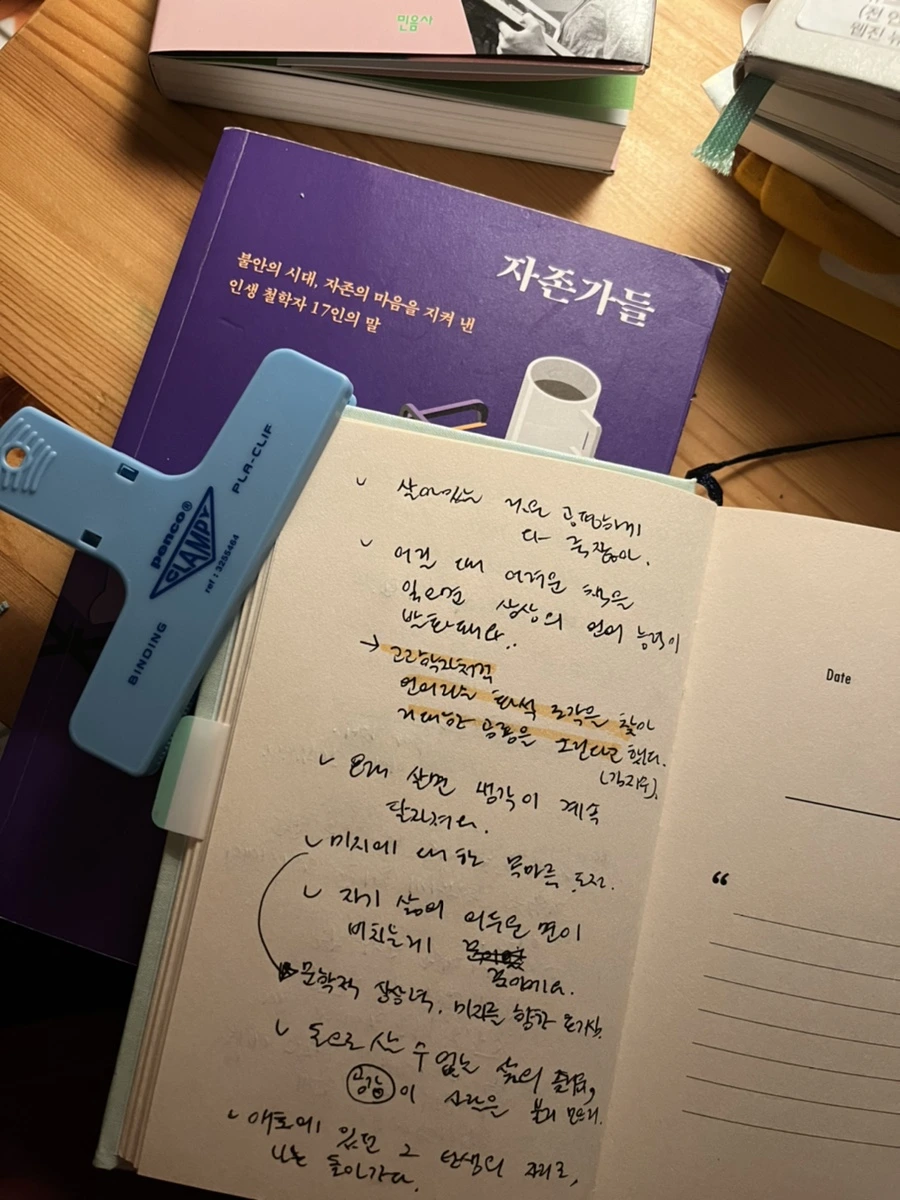 민음사
자존가들
불안의 시대, 자존의 마음을 지켜 낸
인생 철학자 17인의 말
penco®
CLAMPY
PLA-CLIP
ref : 3255464
BINDING
살아있는 것은 공평하게
다 죽잖아.
어릴 때 어려운 책을
읽으면 상상의 언어 능력이
발달돼요..
→ 고고학자처럼
언어라는 화석 조각을 찾아
거대한 공룡을 그린다고 했다.
(김지수).
오래 살면 생각이 계속
달라져요.
미지에 대한 목마른 도전.
자기 삶의 어두운 면이
비치는게
꿈이에요.
문학적 상상력. 미지를 향한 호기심.
돈으로 살 수 없는 삶의
공감이 사람을 불러 모으리.
애초에 있던 그 탄생의 자리로,
나는 돌아가다.
Date
“